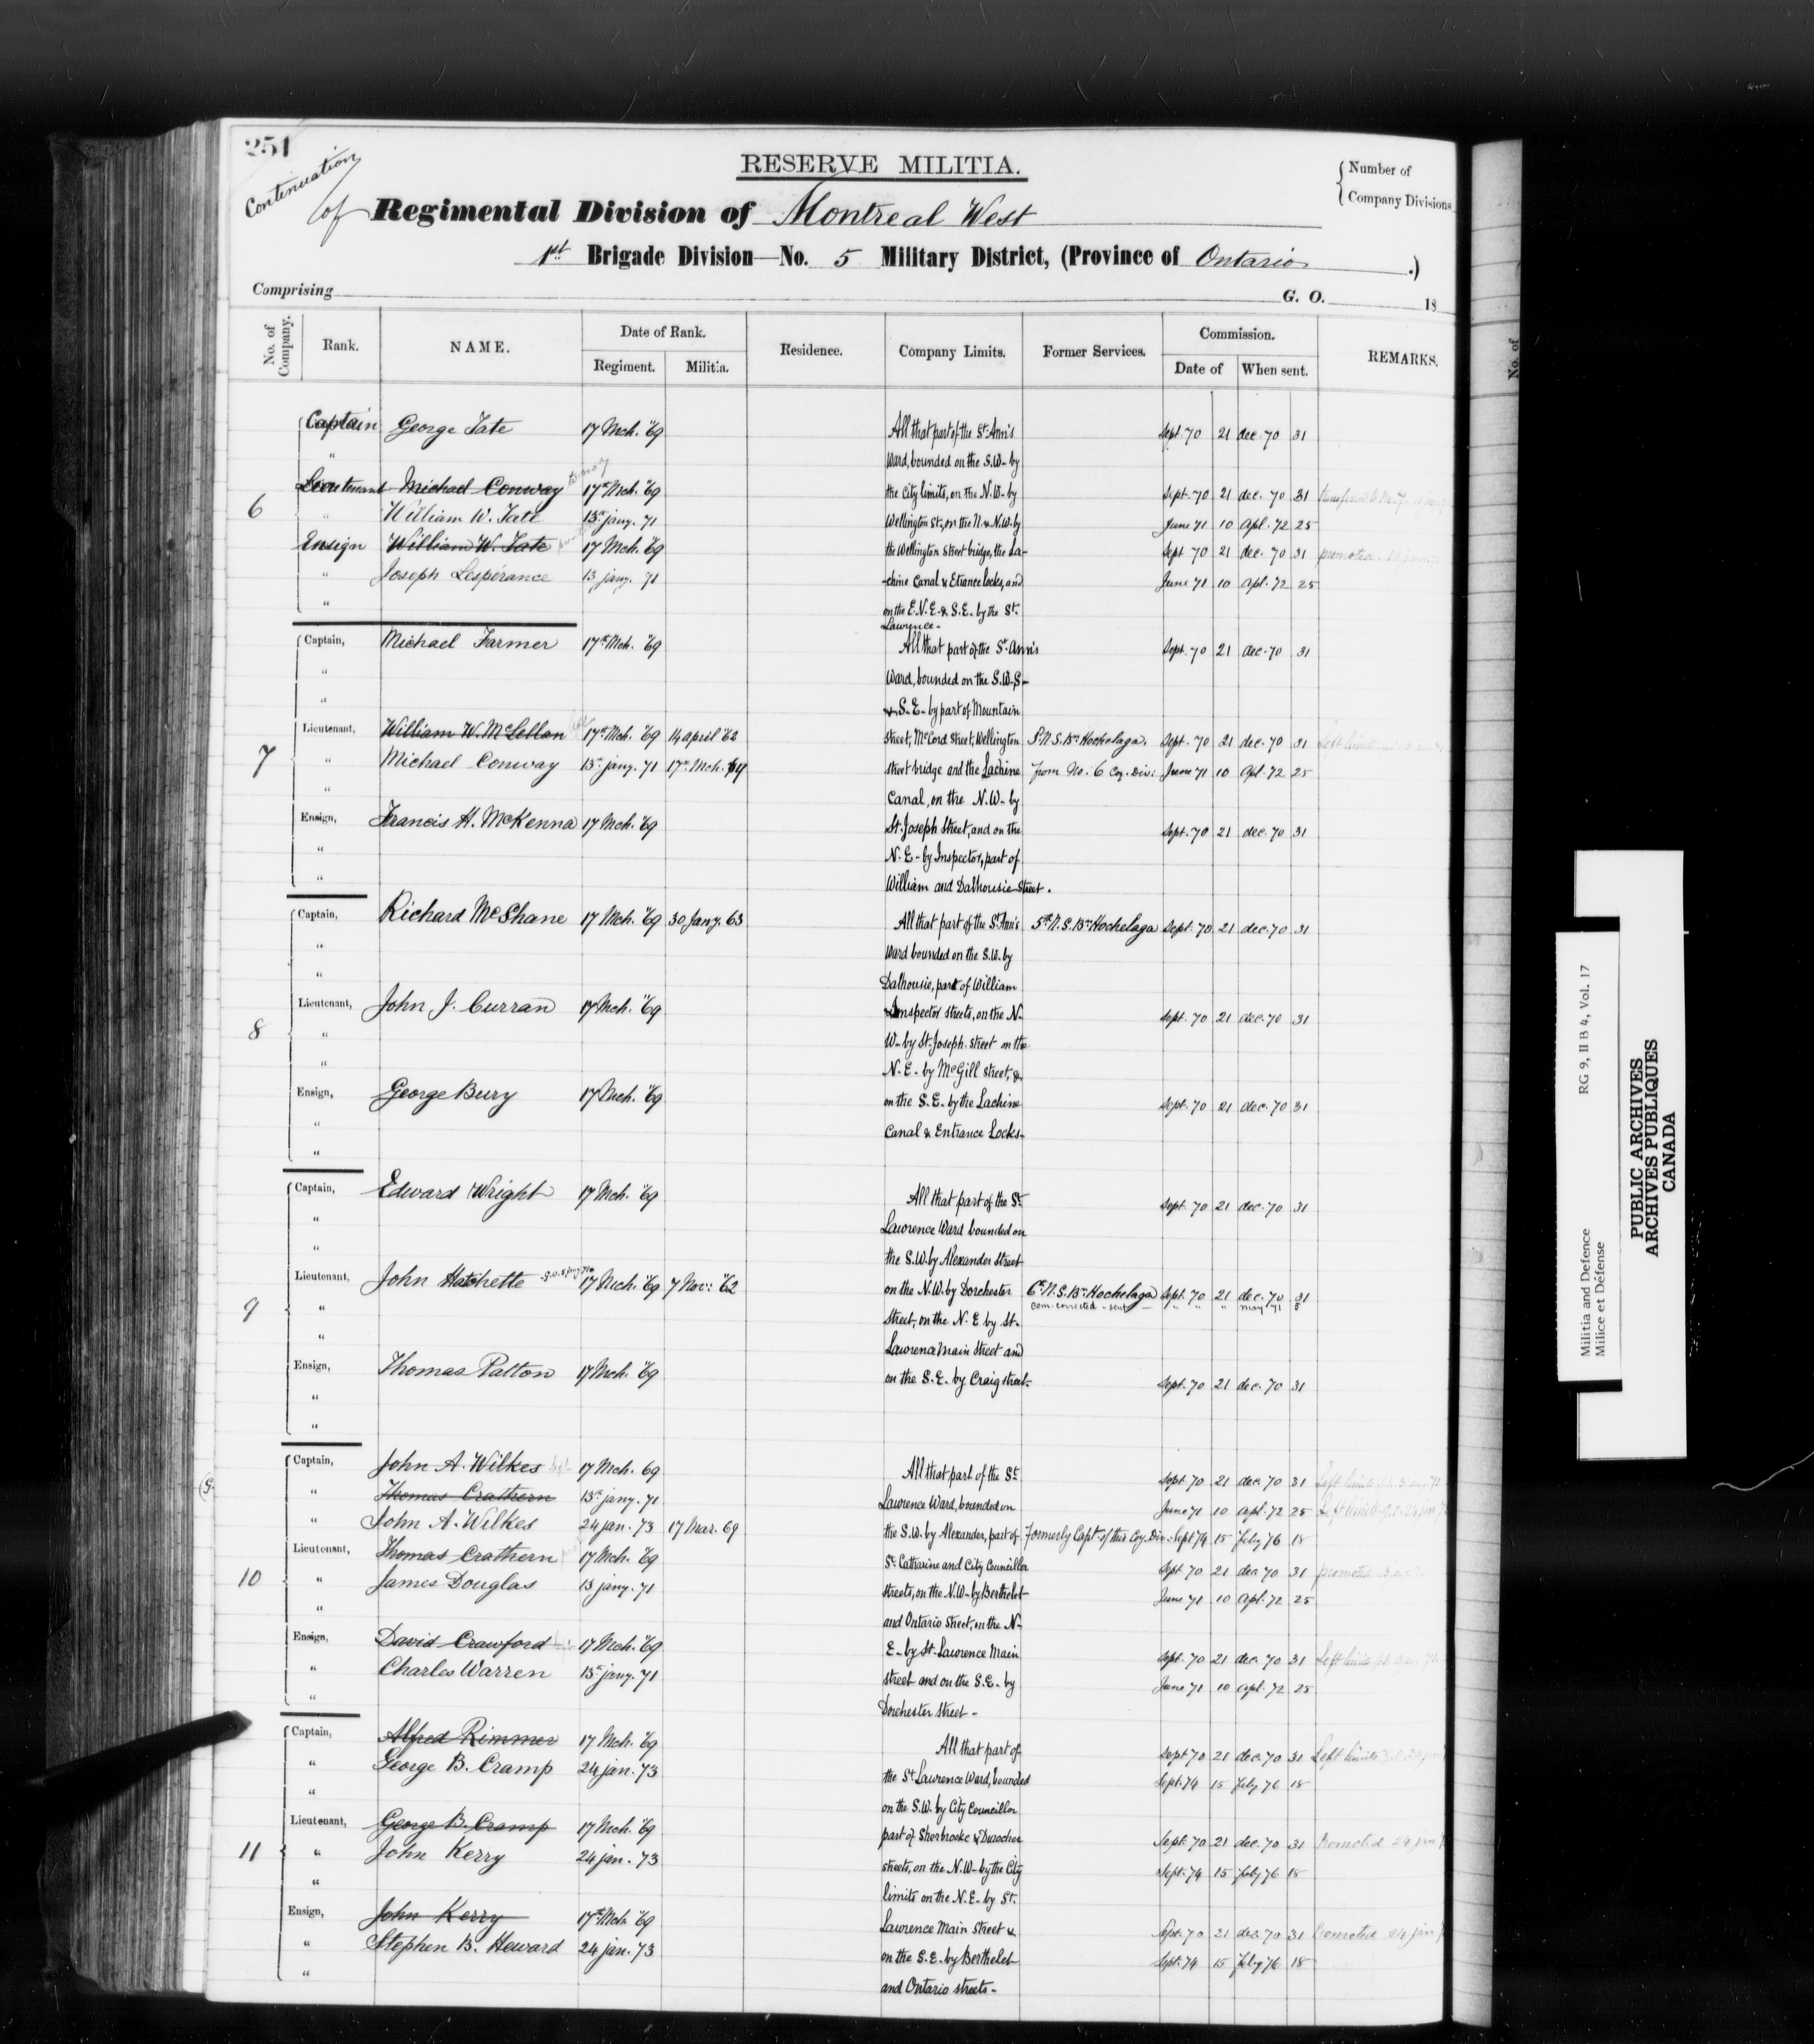 251
Continuation
of Regimental Division of Montreal West
RESERVE MILITIA.
Number of
Company Divisions
1st Brigade Division—No. 5 Military District, (Province of Ontario .)
Comprising G. O. 18
No. of Company. Rank. NAME. Date of Rank. Residence. Company Limits. Former Services. Commission. REMARKS.
Regiment. Militia. Date of When sent.
Captain George Tate 17 Mch. '69 All that part of the St. Ann's Sept. 70 21 dec. 70 31
" Ward, bounded on the S.W. by
Lieutenant Michael Conway 17th Mch. '69 the City limits, on the N.W. by Sept. 70 21 dec. 70 31
6 " William W. Tate 13th jany. 71 Wellington St., on the N. & N.W. by June 71 10 Apl. 72 25
Ensign William W. Tate 17 Mch. '69 the Wellington Street bridge, the La- Sept 70 21 dec. 70 31 promoted
" Joseph Lespérance 13 jany. 71 chine Canal & Etrance Locks, and June 71 10 Apl. 72 25
" on the E. N. E. & S. E. by the St.
Lawrence.
Captain, Michael Farmer 17th Mch. '69 All that part of the St. Ann's Sept. 70 21 dec. 70 31
" Ward, bounded on the S.W. S-
" & S. E. by part of Mountain
Lieutenant, William W. McLellan 17th Mch. '69 14 april '62 Street, McCord Street, Wellington Sept. 70 21 dec. 70 31
7 " Michael Conway 13th jany. 71 17th Mch. street bridge and the Lachine from No. 6 Coy. Div: June 71 10 Apl. 72 25
" Canal, on the N.W. by
Ensign, Francis H. McKenna 17 Mch. '69 St. Joseph Street, and on the Sept. 70 21 dec. 70 31
" N. E. by Inspector, part of
" William and Dalhousie Street.
Captain, Richard McShane 17 Mch. '69 30 Jany. 63 All that part of the St. Ann's 5th N. S. Bn Hochelaga Sept. 70 21 dec. 70 31
" Ward bounded on the S.W. by
" Dalhousie, part of William
Lieutenant, John J. Curran 17 Mch. '69 Inspector streets, on the N. Sept. 70 21 dec. 70 31
8 " W. by St. Joseph. street on the
" N. E. by McGill street, &
Ensign, George Bury 17 Mch. '69 on the S. E. by the Lachine Sept. 70 21 dec. 70 31
" Canal & Entrance Locks.
"
Captain, Edward Wright 17 Mch. '69 All that part of the St. Sept. 70 21 dec. 70 31
" Lawrence Ward bounded on
" the S.W. by Alexander Street
Lieutenant, John Hatchette 17 Mch. '69 7 Nov: '62 on the N.W. by Dorchester 6th N. S. Bn Hochelaga Sept. 70 21 dec. 70 31
9 " Street, on the N. E by St. Com. corrected - sent " " " may 71 5
" Lawrence Main Street and
Ensign, Thomas Patton 17 Mch. '69 on the S. E. by Craig street. Sept. 70 21 dec. 70 31
"
"
Captain, John A. Wilkes left 17 Mch. 69 All that part of the St. Sept. 70 21 dec. 70 31 Left limits
" Thomas Crathern 13th jany. 71 Lawrence Ward, bounded on June 71 10 apl. 72 25 Left limits
" John A. Wilkes 24 jan. 73 17 Mar. 69 the S.W. by Alexander, part of formerly Capt. of this Coy. Div. Sept 74 15 feby 76 18
Lieutenant, Thomas Crathern 17 Mch. '69 St. Catharine and City Councillor Sept. 70 21 dec. 70 31 promoted
10 " James Douglas 13 jany. 71 streets, on the N.W. by Berthelet June 71 10 apl. 72 25
" and Ontario Street, on the N.
Ensign, David Crawford 17 Mch. '69 E. by St. Lawrence Main Sept. 70 21 dec. 70 31 Left limits
" Charles Warren 13th jany. 71 street and on the S. E. by June 71 10 apl. 72 25
" Dorchester Street.
Captain, Alfred Rimmer 17 Mch. '69 All that part of Sept 70 21 dec. 70 31 Left limits
" George B. Cramp 24 jan. 73 the St. Lawrence Ward, bounded Sept. 74 15 feby 76 18
" on the S.W. by City Councillor
Lieutenant, George B. Cramp 17 Mch. '69 part of Sherbrooke & Durocher Sept. 70 21 dec. 70 31 Promoted 24 jan
11 " John Kerry 24 jan. 73 streets, on the N.W. by the City Sept. 74 15 feby 76 18
" limits on the N. E. by St.
Ensign, John Kerry 17th Mch '69 Lawrence Main Street & Sept. 70 21 dec. 70 31 Promoted 24 jan
" Stephen B. Heward 24 jan. 73 on the S. E. by Berthelet Sept. 74 15 feby 76 18
" and Ontario streets.
No. of
Militia and Defence RG 9, II B 4, Vol. 17
Milice et Défense
PUBLIC ARCHIVES
ARCHIVES PUBLIQUES
CANADA